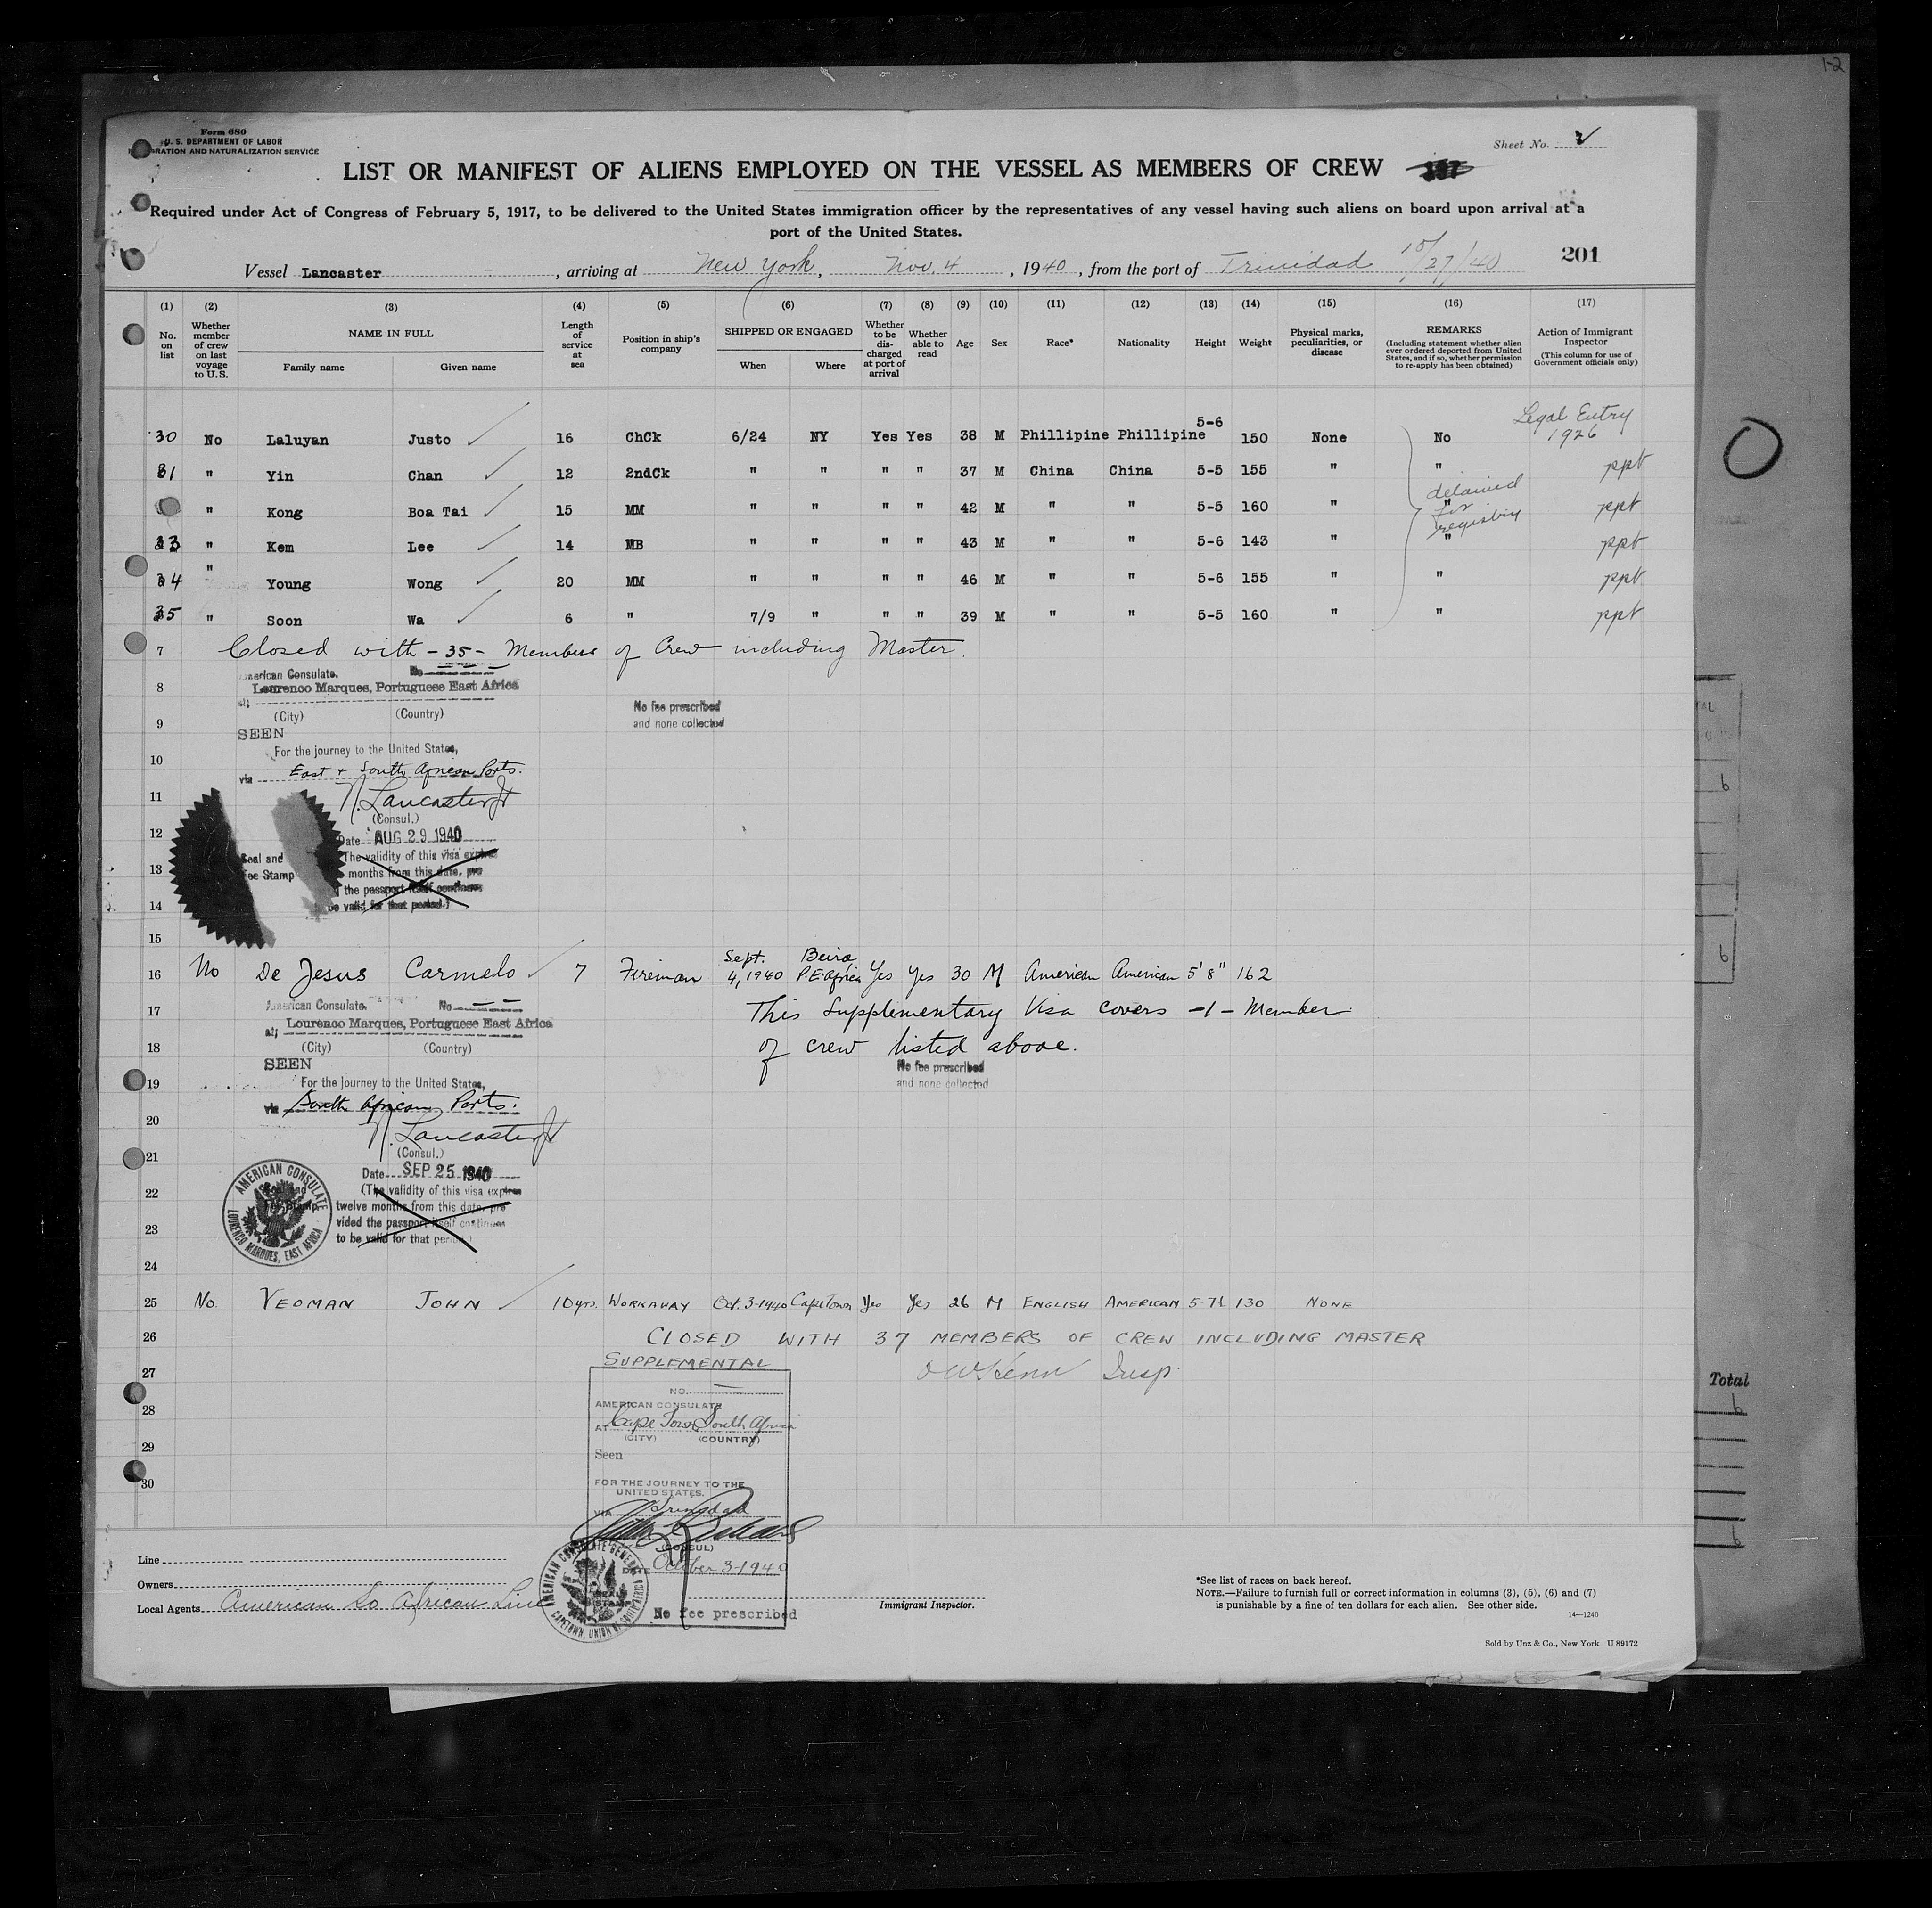 1-2
Form 680
U. S. DEPARTMENT OF LABOR
RATION AND NATURALIZATION SERVICE
Sheet No. 2
LIST OR MANIFEST OF ALIENS EMPLOYED ON THE VESSEL AS MEMBERS OF CREW
Required under Act of Congress of February 5, 1917, to be delivered to the United States immigration officer by the representatives of any vessel having such aliens on board upon arrival at a
port of the United States.
201
Vessel Lancaster, arriving at New York, Nov. 4, 1940, from the port of Trinidad 10/27/40
(1) (2) (3) (4) (5) (6) (7) (8) (9) (10) (11) (12) (13) (14) (15) (16) (17)
No. on list
Whether member of crew on last voyage to U.S.
NAME IN FULL
Family name Given name
Length of service at sea
Position in ship's company
SHIPPED OR ENGAGED
When Where
Whether to be discharged at port of arrival
Whether able to read
Age
Sex
Race*
Nationality
Height
Weight
Physical marks, peculiarities, or disease
REMARKS
(Including statement whether alien ever ordered deported from United States, and if so, whether permission to re-apply has been obtained)
Action of Immigrant Inspector
(This column for use of Government officials only)
30 No Laluyan Justo 16 ChCk 6/24 NY Yes Yes 38 M Phillipine Phillipine 5-6 150 None No Legal Entry 1926
31 " Yin Chan 12 2ndCk " " " " 37 M China China 5-5 155 " " ppt
" Kong Boa Tai 15 MM " " " " 42 M " " 5-5 160 " " ppt
detained for registry
33 " Kem Lee 14 MB " " " " 43 M " " 5-6 143 " " ppt
34 " Young Wong 20 MM " " " " 46 M " " 5-6 155 " " ppt
35 " Soon Wa 6 " 7/9 " " " 39 M " " 5-5 160 " " ppt
7 Closed with -35- Members of Crew including Master.
American Consulate. No
8 Lourenco Marques, Portuguese East Africa
at
(City) (Country)
No fee prescribed
and none collected
9
SEEN
For the journey to the United States,
10
via East & South African Ports.
11 N. Lancaster Jr
(Consul.)
12 Date AUG 29 1940
Seal and
Fee Stamp
(The validity of this visa expires
13 months from this date, pro
the passport itself continues
14 be valid for that period.)
15
16 No De Jesus Carmelo 7 Fireman Sept. 4, 1940 Beira P.E Africa Yes Yes 30 M American American 5'8" 162
17 This Supplementary Visa covers -1- Member
of crew listed above.
American Consulate. No
at Lourenco Marques, Portuguese East Africa
18 (City) (Country)
SEEN
No fee prescribed
and none collected
19 For the journey to the United States,
via South African Ports.
20 N. Lancaster Jr
21 (Consul.)
Date SEP 25 1940
AMERICAN CONSULATE
LOURENCO MARQUES, EAST AFRICA
Seal and
Fee Stamp
22 (The validity of this visa expires
twelve months from this date, pro
vided the passport itself continues
23 to be valid for that period.)
24
25 No. YEOMAN JOHN 10 yrs. WORKAWAY Oct. 3-1940 CapeTown Yes Yes 26 M ENGLISH AMERICAN 5-7½ 130 NONE
26 CLOSED WITH 37 MEMBERS OF CREW INCLUDING MASTER
27 SUPPLEMENTAL
Insp.
NO.
28 AMERICAN CONSULATE
AT Cape Town South Africa
(CITY) (COUNTRY)
29 Seen
30 FOR THE JOURNEY TO THE
UNITED STATES.
VIA Trinidad
(CONSUL)
DATE October 3-1940
AMERICAN CONSULATE GENERAL
CAPETOWN, UNION OF SOUTH AFRICA
No fee prescribed
Line
Owners
Local Agents American So African Line
Immigrant Inspector.
*See list of races on back hereof.
NOTE.—Failure to furnish full or correct information in columns (3), (5), (6) and (7)
is punishable by a fine of ten dollars for each alien. See other side.
14—1240
Sold by Unz & Co., New York U 89172
Total
6
6